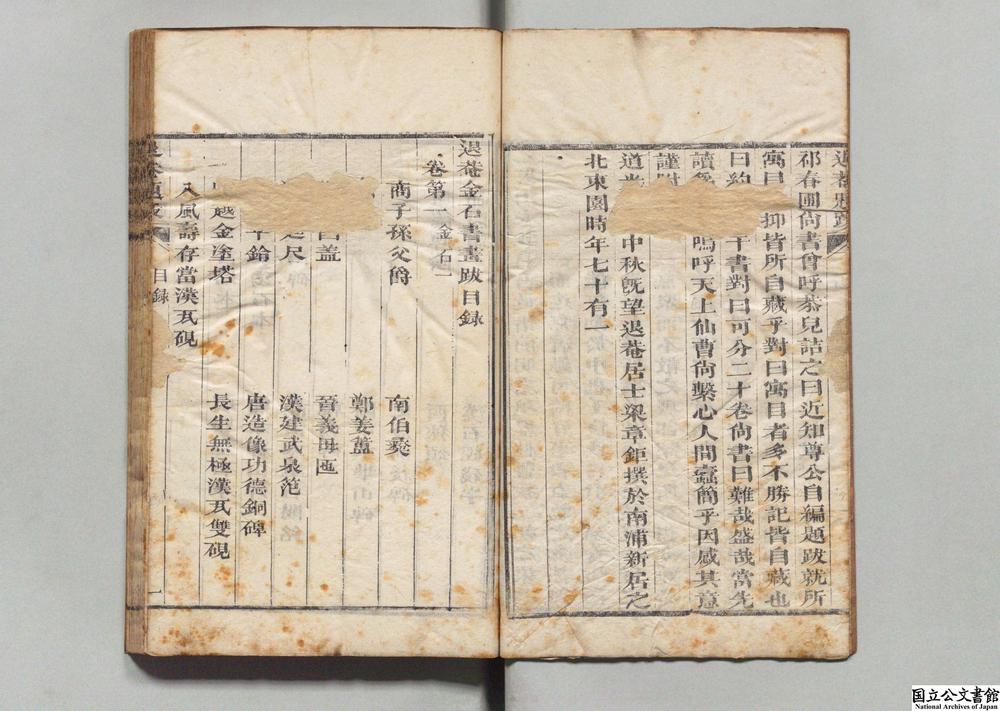 祁春圃尙書曾呼恭兒詰之曰近知尊公自編題跋就所
寓目 抑皆所自藏乎對曰寓目者多不勝記皆自藏也
曰約 干書對曰可分二十卷尙書曰難哉盛哉當先
讀爲 嗚呼天上仙曹尙繫心人間蠧簡乎因感其意
謹附
道光 中秋旣望退菴居士梁章鉅撰於南浦新居之
北東園時年七十有一
退菴金石書畫跋目錄
卷第一 金石一
商子孫父爵
南伯彝
鄭姜簠
蓋
晉義母匜
尺
漢建武泉笵
唐造像功德銅碑
越金塗塔
長生無極漢瓦雙硯
八風壽存當漢瓦硯
目錄
一
国立公文書館
National Archives of Japan